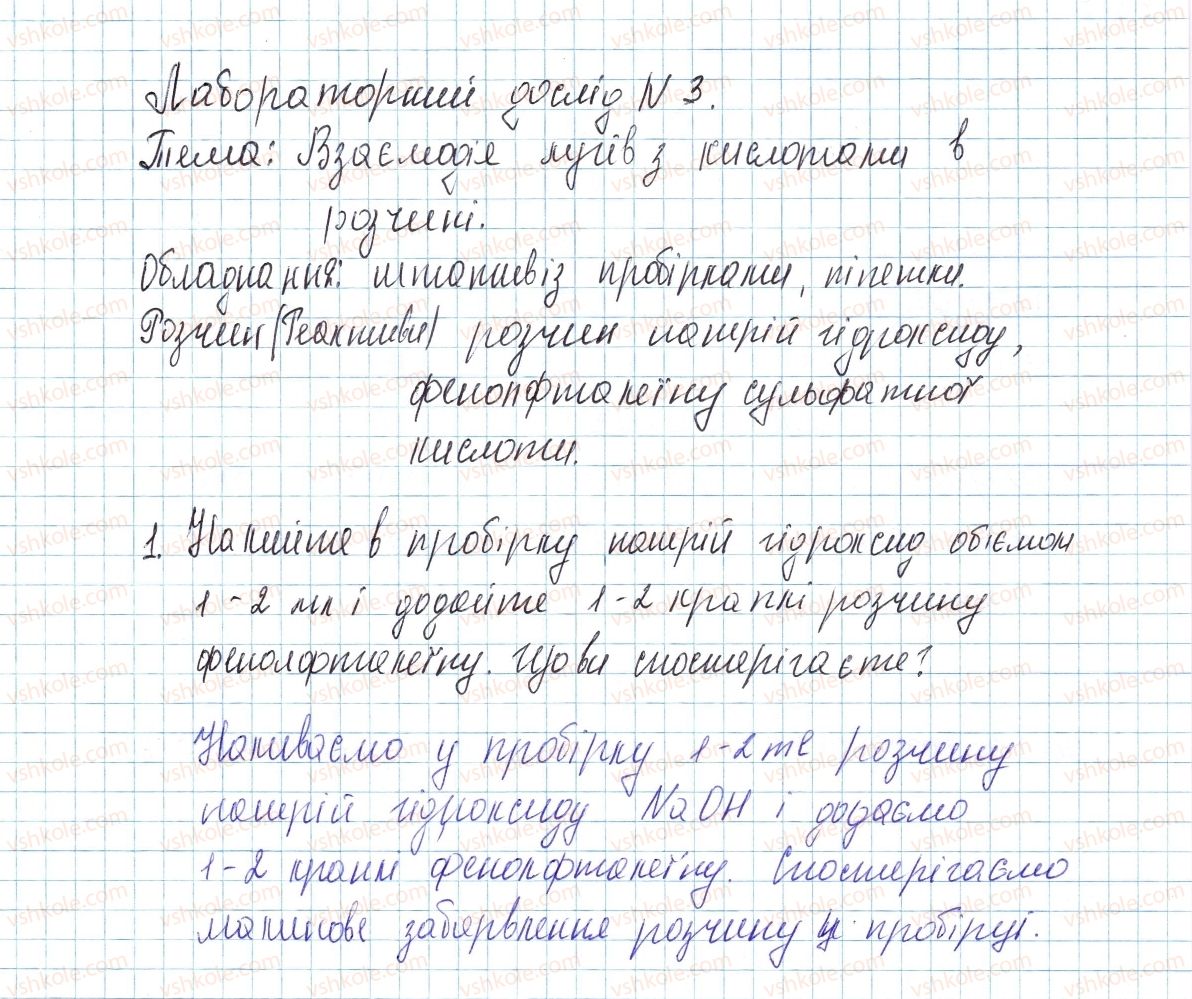 Лабораторний дослід N 3.
Тема: Взаємодія лугів з кислотами в
розчині.
Обладнання: штатив із пробірками, піпетки.
Розчин (Реактиви) розчин натрій гідроксиду,
фенолфталеїну сульфатної
кислоти.
1. Налийте в пробірку натрій гідроксид обіємом
1-2 мл і додайте 1-2 краплі розчину
фенолфталеїну. Що ви спостерігаєте?
Наливаємо у пробірку 1-2 розчину
натрій гідроксиду NaOH і додаємо
1-2 краплі фенолфталеїну. Спостерігаємо
малинове забарвлення розчину у пробірці.